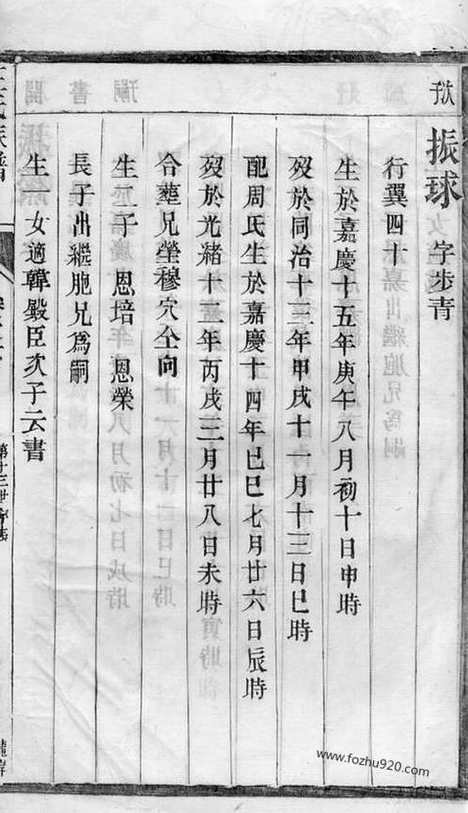 振球 字步青
行翼四十
生於嘉慶十五年庚午八月初十日申時
歿於同治十三年甲戌十一月十三日巳時
配周氏生於嘉慶十四年巳巳七月廿六日辰時
歿於光緒十二年丙戌三月廿八日未時
合塟兄塋穆穴仝向
生二子 恩培 恩榮
長子出繼胞兄爲嗣
生一女適韓毅臣次子云書
www.fozhu920.com